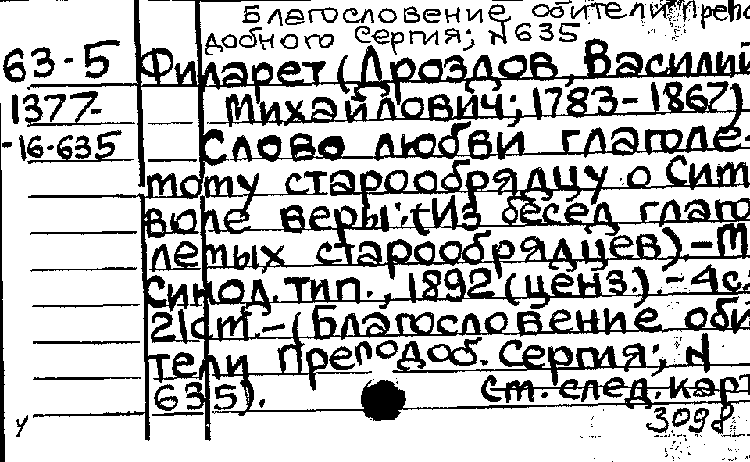 Благословение обители препо
добного Сергия; N 635
63-5 Филарет (Дроздов, Василий
1377- Михайлович; 1783-1867)
-16-635 Слово любви глаголе-
мому старообрядцу о Сим
воле веры: (Из бесед глаго
лемых старообрядцев).-М
Синод. тип., 1892 (ценз.).-4с.:
21см.-(Благословение оби
тели Преподоб. Сергия; N
635).
см. след. карт
3098
у